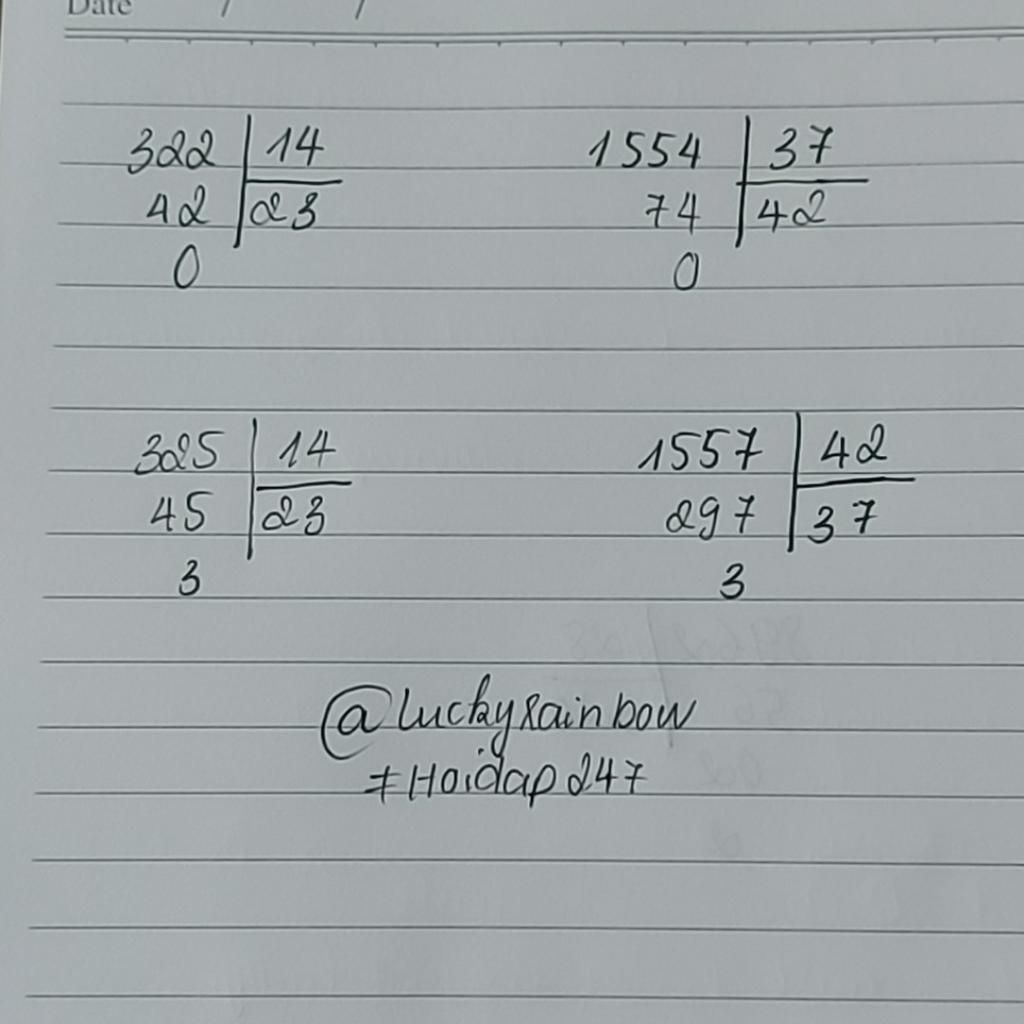 Date / /
322 14 1554 37
42 23 74 42
0 0
325 14 1557 42
45 23 297 37
3 3
@luckyrainbow
#Hoidap247